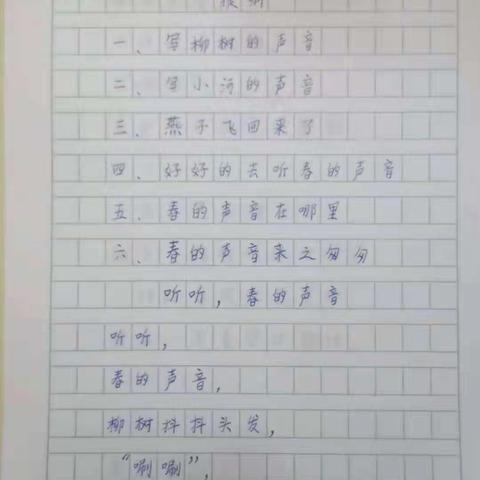 提纲
一、写柳树的声音
二、写小河的声音
三、燕子飞回来了
四、好好的去听春的声音
五、春的声音在哪里
六、春的声音来之匆匆
听听，春的声音
听听，
春的声音，
柳树抖抖头发，
“唰唰”，